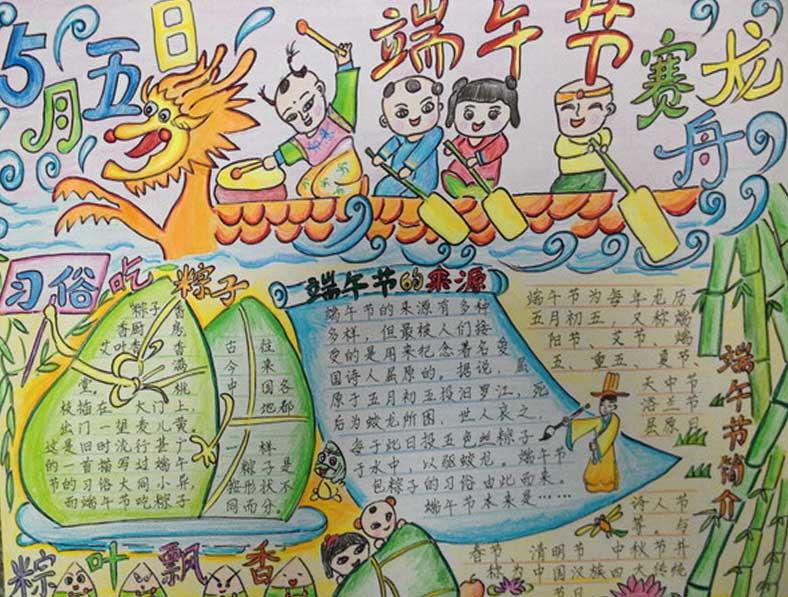 5月五日
端午节
赛龙舟
习俗吃粽子
粽子香
香厨房
艾叶香香
满
堂。桃
枝插在大门上,
出门一望麦儿黄。
这是旧时流行甚广
的一首描写过端午
节的习俗大同小异
而端午节吃粽子
古往
今来
中国各
地都
一样
粽子是
按形状不
同而分。
端午节的来源
端午节的来源有多种
多样,但最被人们接
受的是用来纪念着名爱
国诗人屈原的。据说,屈
原于五月初五投汨罗江,死
后为蛟龙所困,世人哀之,
每于此日投五色丝粽子
于水中,以驱蛟龙。端午节
包粽子的习俗由此而来。
端午节本来是……
端午节为每年农历
五月初五,又称端
阳节、艾节、端
五、重五、夏节、
天中节
浴兰节
屈原日
诗人节
等,与
春节 清明节 中秋节并
称为中国汉族四大传统
节日
端午节简介
粽叶飘香